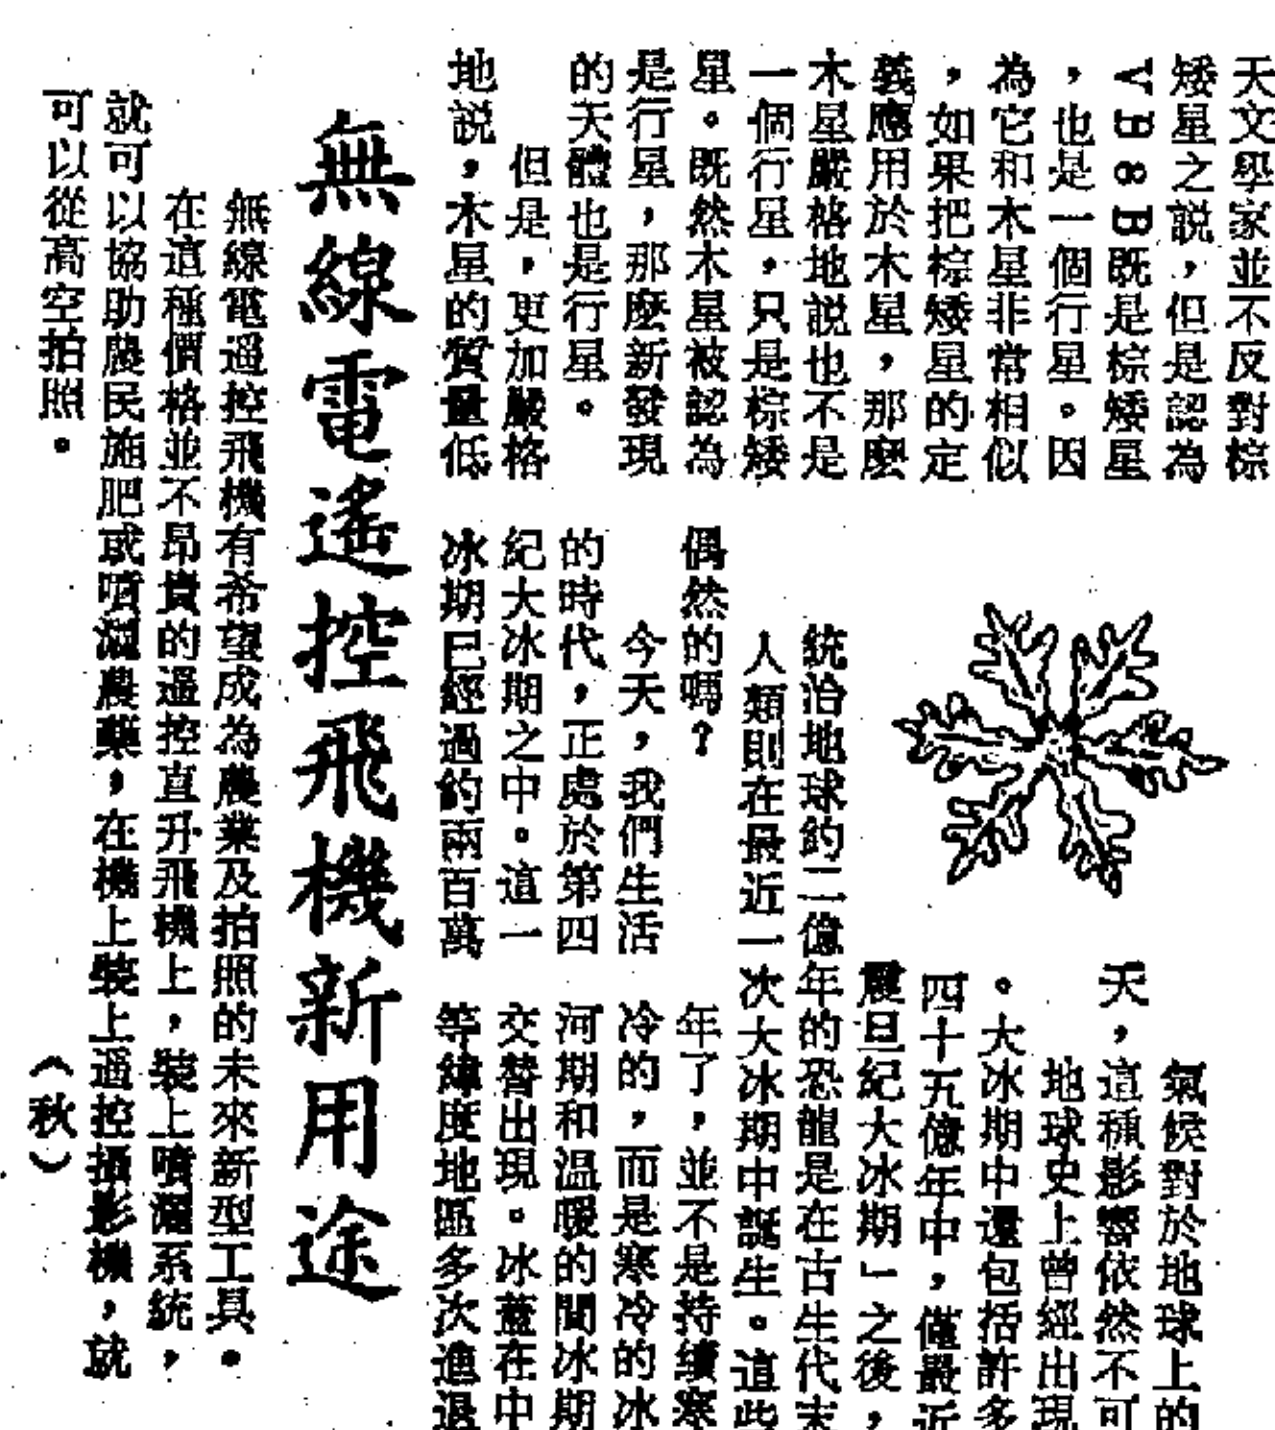 天文學家並不反對棕
矮星之説，但是認為
VB8B既是棕矮星
，也是一個行星。因
為它和木星非常相似
，如果把棕矮星的定
義應用於木星，那麼
木星嚴格地説也不是
一個行星，只是棕矮
星。既然木星被認為
是行星，那麼新發現
的天體也是行星。
但是，更加嚴格
地説，木星的質量低
氣候對於地球上的
天，這種影響依然不可
地球史上曾經出現
。大冰期中還包括許多
四十五億年中，僅最近
震旦紀大冰期」之後，
統治地球約二億年的恐龍是在古生代末
人類則在最近一次大冰期中誕生。這些
偶然的嗎？
今天，我們生活
的時代，正處於第四
紀大冰期之中。這一
冰期已經過約兩百萬
年了，並不是持續寒
冷的，而是寒冷的冰
河期和溫暖的間冰期
交替出現。冰蓋在中
等緯度地區多次進退
無線電遙控飛機新用途
無線電遥控飛機有希望成為農業及拍照的未來新型工具。
在這種價格並不昂貴的遥控直升飛機上，裝上噴灑系統，
就可以協助農民施肥或噴灑農藥，在機上裝上遥控攝影機，就
可以從高空拍照。
（秋）